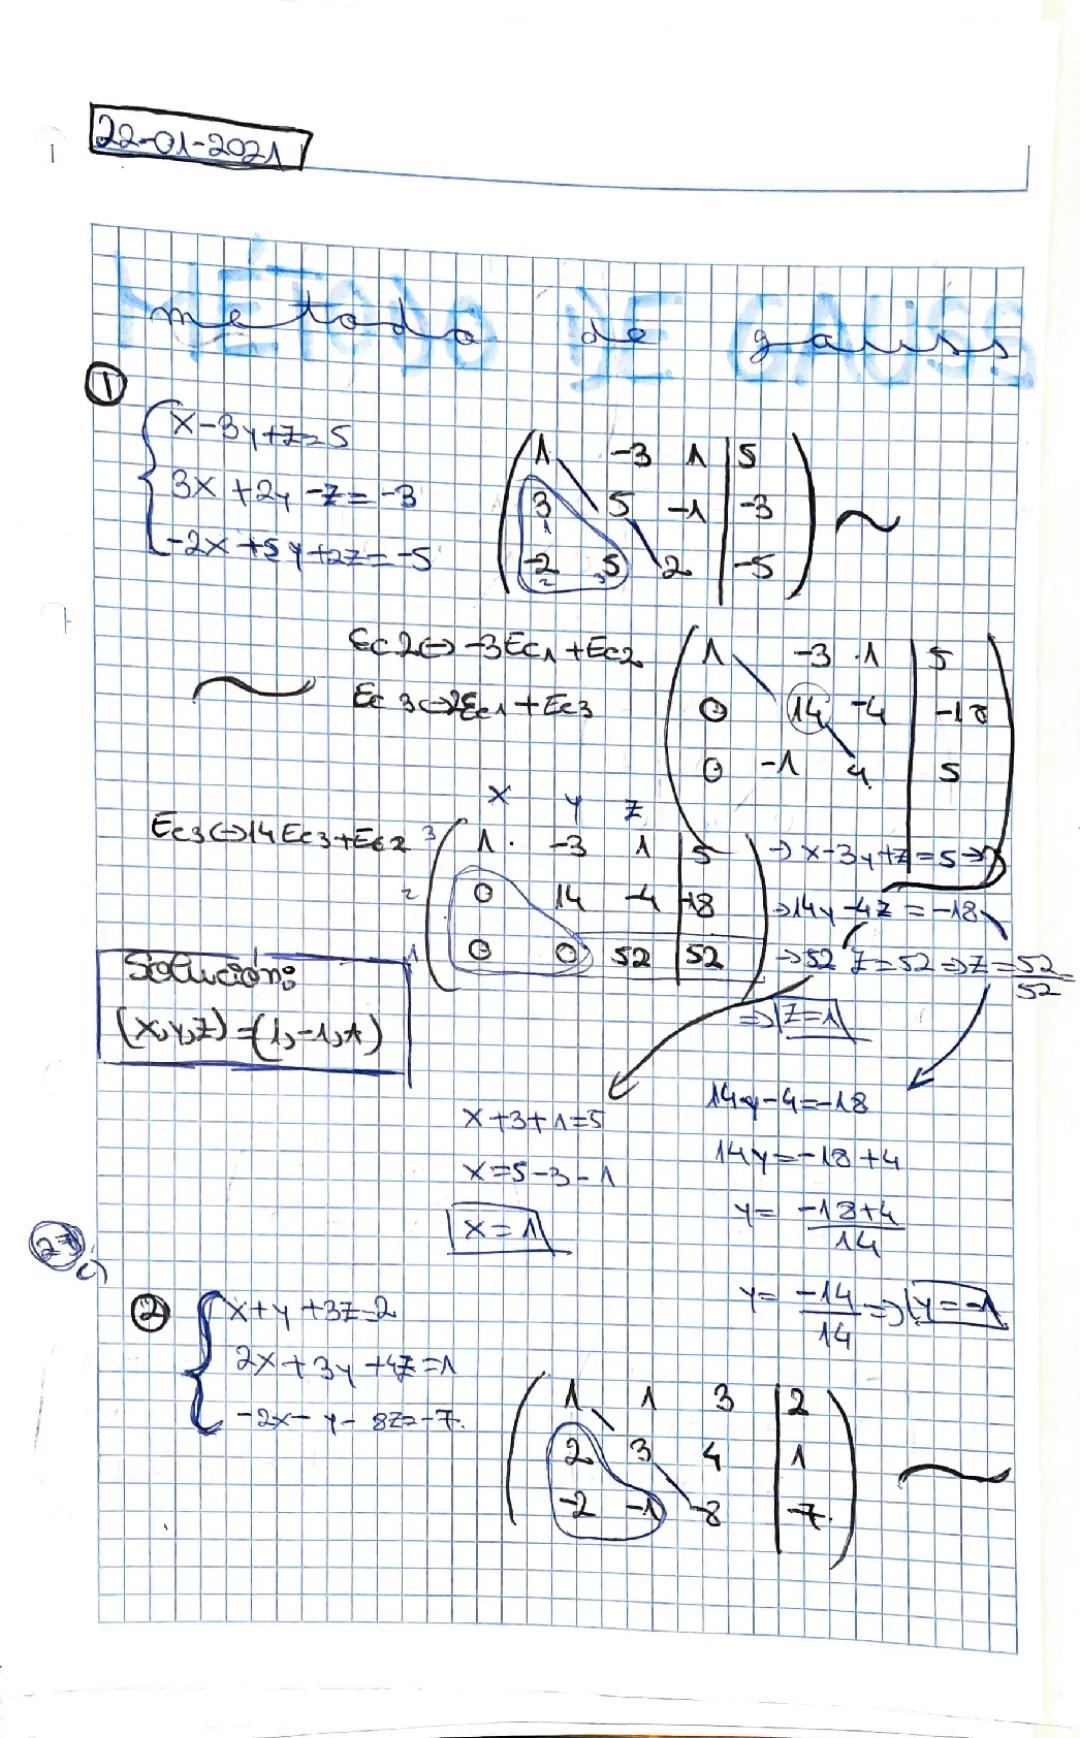 22-01-2021
MÉTODO DE GAUSS
metodo de gauss
①
x-3y+z=5
3x+2y-z=-3
-2x+5y+2z=-5
1 -3 1 | 5
3 5 -1 | -3
-2 5 2 | -5
~
Ec2↔-3Ec1+Ec2
~ Ec3↔2Ec1+Ec3
1 -3 1 | 5
0 14 -4 | -18
0 -1 4 | 5
x y z
Ec3↔14Ec3+Ec2
3 1 -3 1 | 5 → x-3y+z=5 →
2 0 14 -4 | -18 → 14y-4z=-18
1 0 0 52 | 52 → 52z=52 ⇒ z=52/52
⇒ z=1
Solución:
(x,y,z)=(1,-1,1)
x+3+1=5
x=5-3-1
x=1
14y-4=-18
14y=-18+4
y=-18+4/14
y=-14/14 ⇒ y=-1
②
x+y+3z=2
2x+3y+4z=1
-2x-y-8z=-7.
1 1 3 | 2
2 3 4 | 1
-2 -1 -8 | -7.
~